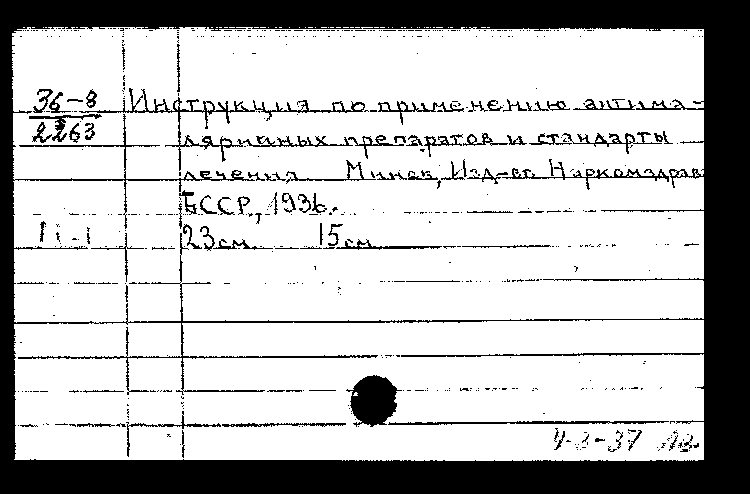 36-8 Инструкция по применению антима-
2263 лярийных препаратов и стандарты
лечения Минск, Изд-во Наркомздрав
БССР, 1936.
23 см. 15 см
4-3-37